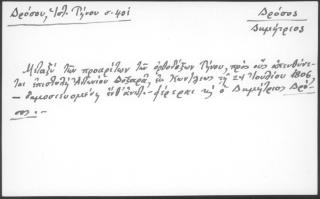 Δρόσου, Ἱστ. Τήνου σ. 401
Δρόσος
Δημήτριος
Μεταξὺ τῶν προκρίτων τῶν ὀρθοδόξων Τήνου, πρὸς οὓς ἀπευθύνε-
ται ἐπιστολὴ Ἀντωνίου Δοξαρᾶ, ἐκ Κων/λεως τῇ 24 Ἰουλίου 1806,
- δημοσιευομένη - φέρεται κ̀ ὁ Δημήτριος Δρό-
σος. -